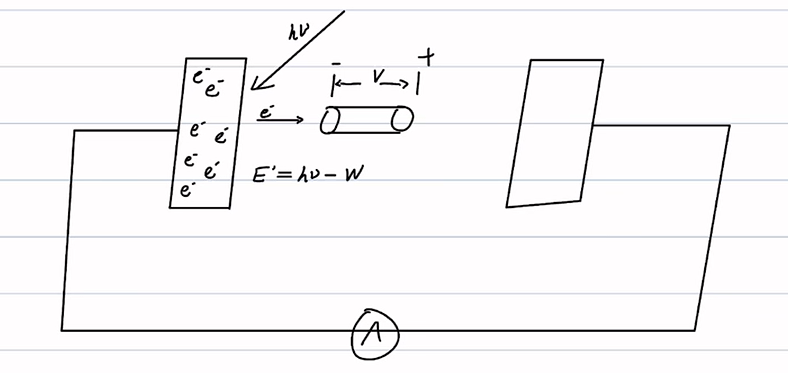 hν
- +
V
e⁻ e⁻
e⁻
e⁻ e⁻
e⁻ e⁻
e⁻
E' = hν - W
A